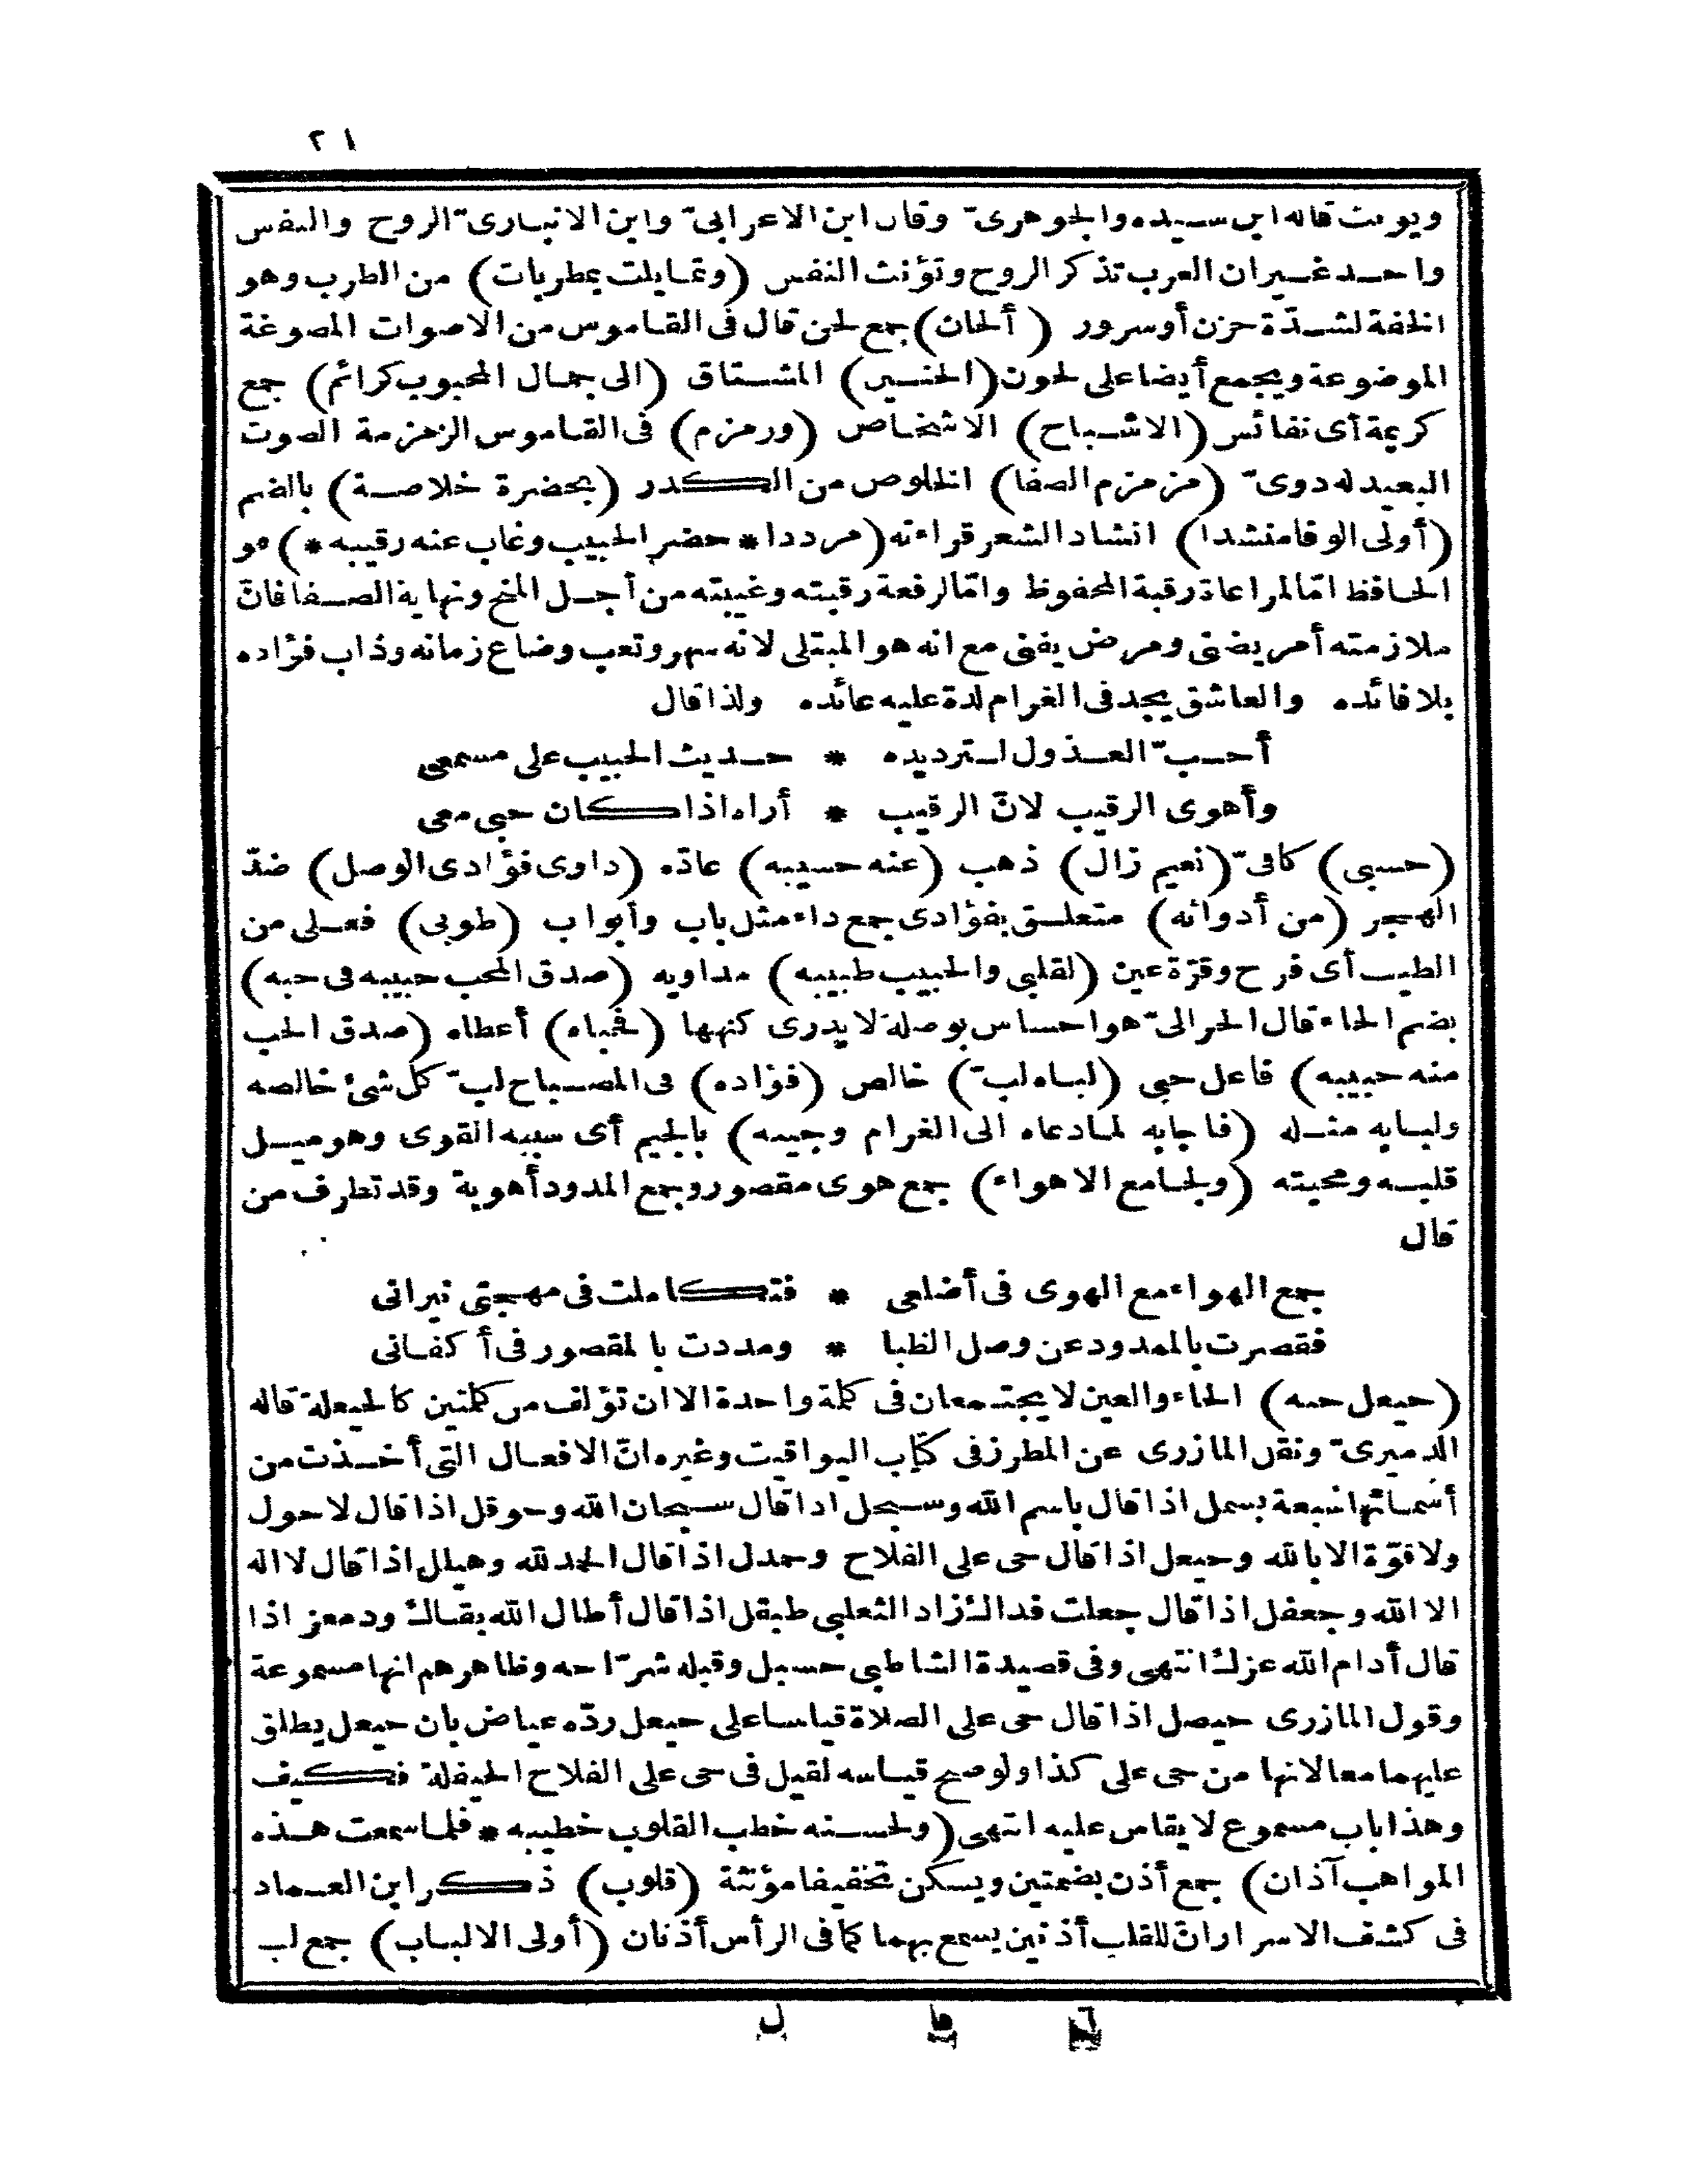 ٢١
ويؤنث قاله ابن سيده والجوهرىّ وقال ابن الاعرابىّ وابن الانبارىّ الروح والنفس
واحد غير ان العرب تذكر الروح وتؤنث النفس (وتمايلت بمطربات) من الطرب وهو
الخفة لشدّة حزن أوسرور (ألحان) جمع لحن قال فى القاموس من الاصوات المصوغة
الموضوعة ويجمع أيضا على لحون (الحنين) المشتاق (الى جمال المحبوب كرائم) جمع
كريمة أى نفائس (الاشباح) الاشخاص (ورمزم) فى القاموس الزمزمة الصوت
البعيد له دوىّ (مزمزم الصفا) الخلوص من الكدر (بحضرة خلاصة) بالضم
(أولى الوفا منشدا) انشاد الشعر قراءته (مرددا * حضر الحبيب وغاب عنه رقيبه *) هو
الحافظ امّا لمراعاة رقبة المحفوظ وامّا لرفعة رقبته وغيبته من أجل المنح ونهاية الصفا فانّ
ملازمته أمر يضنى ومرض يفنى مع انه هو المبتلى لانه سهر وتعب وضاع زمانه وذاب فؤاده
بلا فائده والعاشق يجد فى الغرام لذة عليه عائده ولذا قال
أحبّ العذول لترديده * حديث الحبيب على مسمعى
وأهوى الرقيب لانّ الرقيب * أراه اذا كان حبى معى
(حسبى) كافىّ (نعيم زال) ذهب (عنه حسيبه) عادّه (داوى فؤادى الوصل) ضدّ
الهجر (من أدوائه) متعلق بفؤادى جمع داء مثل باب وأبواب (طوبى) فعلى من
الطيب أى فرح وقرّة عين (لقلبى والحبيب طبيبه) مداويه (صدق المحب حبيبه فى حبه)
بضم الحاء قال الحرالىّ هو احساس بوصلة لا يدرى كنهها (فحباه) أعطاه (صدق الحب
منه حبيبه) فاعل حبى (لباه لبّ) خالص (فؤاده) فى المصباح لبّ كل شئ خالصه
ولبابه مثله (فاجابه لما دعاه الى الغرام وجيبه) بالجيم أى سببه القوى وهو ميل
قلبه ومحبته (ولجامع الاهواء) جمع هوى مقصور وجمع المدود أهوية وقد تظرف من
قال
جمع الهواء مع الهوى فى أضلعى * فتكاملت فى مهجتى نيرانى
فقصرت بالممدود عن وصل الظبا * ومددت بالمقصور فى أكفانى
(حيعل حبه) الحاء والعين لا يجتمعان فى كلمة واحدة الا ان تؤلف من كلمتين كالحيعلة قاله
الدميرىّ ونقل المازرى عن المطرز فى كتاب اليواقيت وغيره انّ الافعال التى أخذت من
أسمائها سبعة بسمل اذا قال باسم الله وسبحل اذا قال سبحان الله وحوقل اذا قال لا حول
ولا قوّة الا بالله وحيعل اذا قال حى على الفلاح وحمدل اذا قال الحمد لله وهيلل اذا قال لا اله
الا الله وجعفل اذا قال جعلت فداك زاد الثعلبى طبقل اذا قال أطال الله بقاك ودمعز اذا
قال أدام الله عزك انتهى وفى قصيدة الشاطبى حسبل وقبله شرّاحه وظاهرهم انها مسموعة
وقول المازرى حيصل اذا قال حى على الصلاة قياسا على حيعل ردّه عياض بان حيعل يطلق
عليهما معا لانها من حى على كذا ولو صح قياسه لقيل فى حى على الفلاح الحيفلة فكيف
وهذا باب مسموع لا يقاس عليه انتهى (ولحسنه خطب القلوب خطيبه * فلما سمعت هذه
المواهب آذان) جمع أذن بضمتين ويسكن تخفيفا مؤنثة (قلوب) ذكر ابن العماد
فى كشف الاسرار ان للقلب أذنين يسمع بهما كما فى الرأس أذنان (أولى الالباب) جمع لب
قا ل